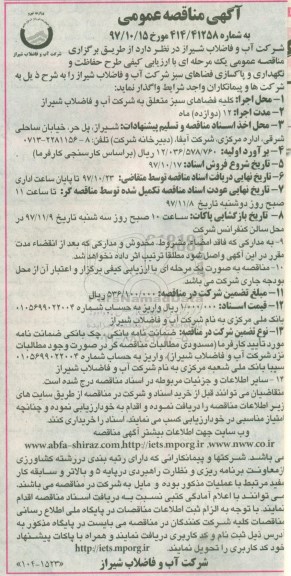 آگهی مناقصه عمومی
به شماره ۴۱۴/۴۱۲۵۸ مورخ ۹۷/۱۰/۱۵
شرکت آب و فاضلاب شیراز
شرکت آب و فاضلاب شیراز در نظر دارد از طریق برگزاری
مناقصه عمومی یک مرحله ای با ارزیابی کیفی طرح حفاظت و
نگهداری و پاکسازی فضاهای سبز شرکت آب و فاضلاب شیراز را به شرح ذیل به
شرکت ها و پیمانکاران واجد شرایط واگذار نماید:
۱- محل اجرا: کلیه فضاهای سبز متعلق به شرکت آب و فاضلاب شیراز
۲- مدت اجرا: ۱۲ (دوازده) ماه
۳- محل اخذ اسناد مناقصه و تسلیم پیشنهادات: شیراز، پل حر، خیابان ساحلی
شرقی، اداره مرکزی، شرکت آبفا، (دبیرخانه شرکت) تلفن: ۸-۲۲۸۱۱۵۶-۰۷۱۳
۴- برآورد اولیه: ۱۲/۰۳۶/۵۷۸/۷۶۰ ریال (براساس کارسنجی کارفرما)
۵- تاریخ شروع فروش اسناد: ۹۷/۱۰/۱۷
۶- تاریخ نهایی دریافت اسناد مناقصه توسط متقاضی: ۹۷/۱۰/۲۳ تا پایان ساعت اداری
۷- تاریخ نهایی عودت اسناد مناقصه تکمیل شده توسط مناقصه گر: تا ساعت ۱۱
صبح روز دوشنبه تاریخ ۹۷/۱۱/۸
۸- تاریخ بازگشایی پاکات: ساعت ۱۰ صبح روز سه شنبه تاریخ ۹۷/۱۱/۹ در
محل سالن کنفرانس شرکت
۹- به مدارکی که فاقد امضاء، مشروط، مخدوش و مدارکی که بعد از انقضاء مدت
مقرر در این آگهی واصل شود مطلقا ترتیب اثر داده نخواهد شد.
۱۰- مناقصه به صورت یک مرحله ای با ارزیابی کیفی برگزار و اعتبار آن از محل
بودجه جاری شرکت می باشد.
۱۱- مبلغ تضمین شرکت در مناقصه: ۵۳۶/۱۰۰/۰۰۰ ریال
۱۲- قیمت اسناد: ۱/۰۰۰/۰۰۰ ریال واریز به حساب شماره ۰۱۰۵۶۹۹۰۲۲۰۰۴
بانک ملی مرکزی به نام شرکت آب و فاضلاب شیراز
۱۳- نوع تضمین شرکت در مناقصه: ضمانت نامه بانکی، چک بانکی ضمانت نامه
مورد تأیید کارفرما (مسدودی مطالبات مناقصه گر در صورت وجود مطالبات
نزد شرکت آب و فاضلاب شیراز)، واریز به حساب شماره ۰۱۰۵۶۹۹۰۲۲۰۰۴
سیبا بانک ملی شعبه مرکزی به نام شرکت آب و فاضلاب شیراز
۱۴- سایر اطلاعات و جزئیات مربوطه در اسناد مناقصه درج شده است.
متقاضیان می توانند قبل از خرید اسناد و شرکت در مناقصه از طریق سایت های
زیر اطلاعات مناقصه را دریافت نموده و اقدام به خودارزیابی نموده و چنانچه
امتیاز مناسبی در خودارزیابی کسب می نمایند، اسناد را خریداری کنند.
وب سایت جهت اطلاعات بیشتر آگهی مناقصه
www.abfa-shiraz.com,http//iets.mporg.ir .www.nww.co.ir
می باشد. شرکتها و پیمانکارانی که دارای رتبه بندی در رشته کشاورزی
از معاونت برنامه ریزی و نظارت راهبردی در پایه ۵ و بالاتر و سابقه کار
مفید مرتبط با عملیات مذکور بوده و مایل به شرکت در مناقصه می باشند،
می توانند با اعلام آمادگی کتبی نسبت به دریافت اسناد مناقصه اقدام
نمایند. با توجه به الزام ثبت اطلاعات مناقصات در پایگاه ملی اطلاع رسانی
مناقصات کلیه شرکت کنندگان در مناقصه می بایست در پایگاه مذکور به
آدرس ذیل ثبت نام و کد کاربری دریافت نمایند و همراه با پاکات پیشنهاد
خود کد کاربری را تحویل نمایند http://iets.mporg.ir
شرکت آب و فاضلاب شیراز
«۱۰۴-۱۵۲۳»